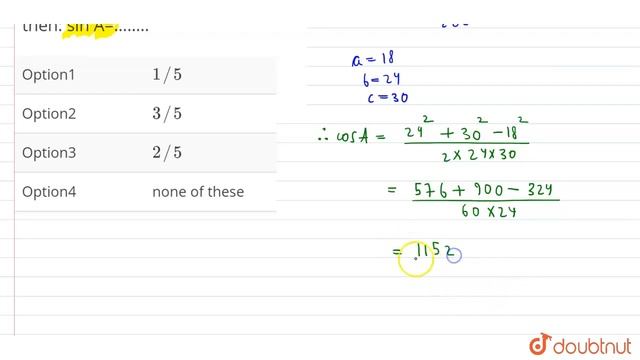 then: sin A=........
Option1 1/5
Option2 3/5
Option3 2/5
Option4 none of these
a = 18
b = 24
c = 30
∴ cos A = 24² + 30² - 18² / 2 × 24 × 30
= 576 + 900 - 324 / 60 × 24
= 1152
doubtnut